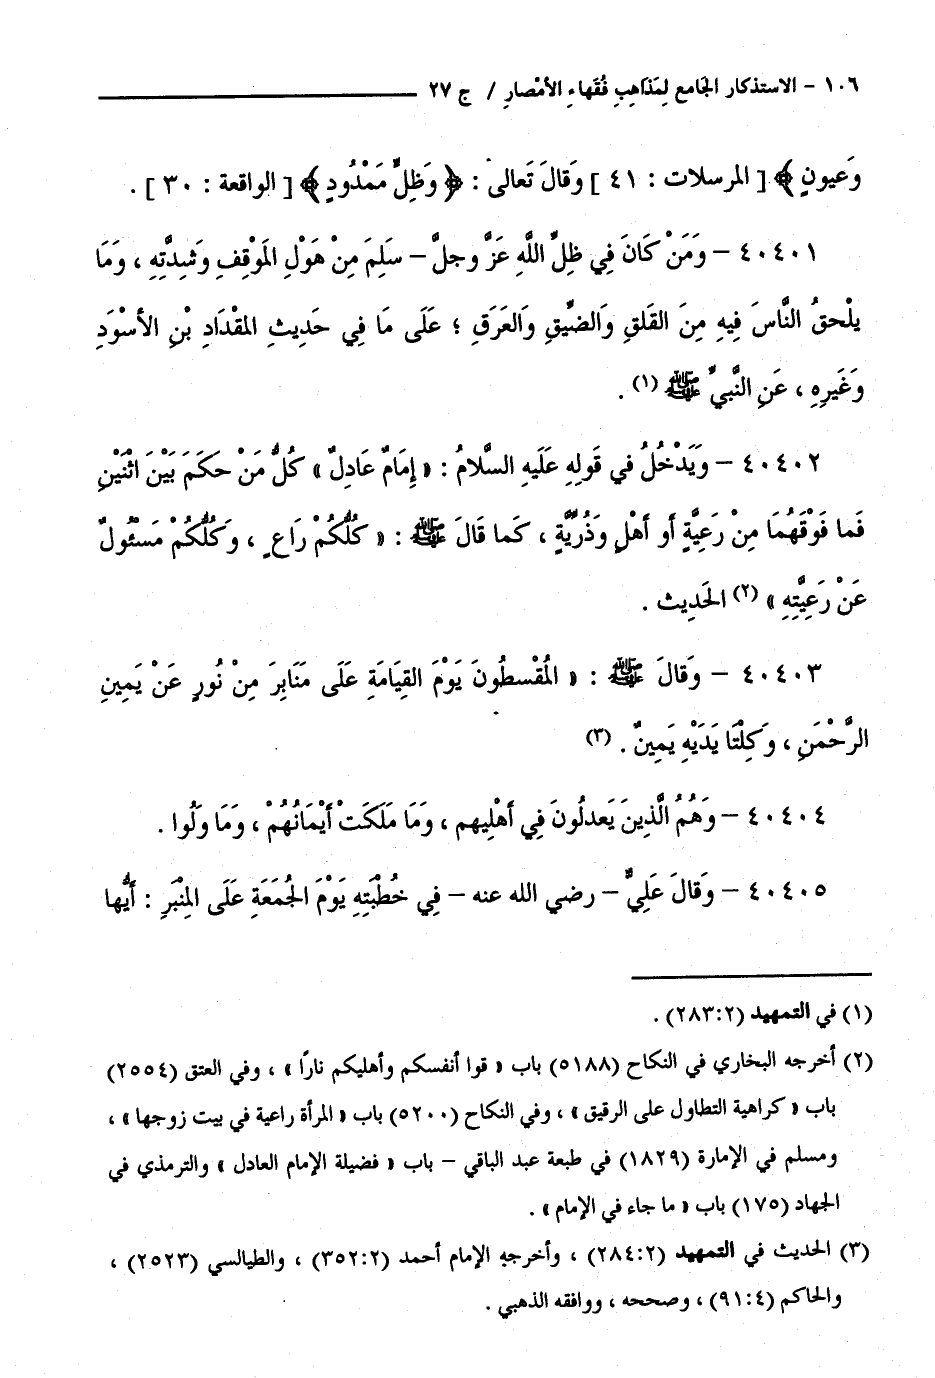 ١٠٦ - الاستذكار الجَامع لِمَذاهِبِ فُقَهاءِ الأمْصارِ / ج ٢٧
وَعيونٍ ﴾ [ المرسلات : ٤١ ] وَقالَ تَعالى : ﴿ وَظِلٍّ مَمْدُودٍ ﴾ [ الواقعة : ٣٠ ] .
٤٠٤٠١ - وَمَنْ كَانَ فِي ظِلِّ اللَّهِ عَزَّ وجلَّ - سَلِمَ مِنْ هَوْلِ المَوْقِفِ وَشِدَّتِهِ ، وَمَا
يلْحقُ النَّاسَ فِيهِ مِنَ القَلَقِ وَالضِّيقِ وَالعَرَقِ ؛ عَلَى مَا فِي حَدِيثِ المقْدَادِ بْنِ الأسْوَدِ
وَغَيرِهِ ، عَنِ النَّبيِّ ﷺ (١) .
٤٠٤٠٢ - وَيَدْخُلُ في قَولِهِ عَلَيهِ السَّلامُ : « إِمَامٌ عَادِلٌ » كُلُّ مَنْ حكَمَ بَيْنَ اثْنَيْنِ
فَما فَوْقَهُمَا مِنْ رَعِيَّةٍ أو أَهْلٍ وَذُرِّيَّةٍ ، كَما قَالَ ﷺ : « كُلُّكُمْ رَاعٍ ، وَكُلُّكُمْ مَسْئُولٌ
عَنْ رَعِيَّتِهِ » (٢) الحَدِيث .
٤٠٤٠٣ - وَقالَ ﷺ : « المُقْسطُونَ يَوْمَ القِيَامَةِ عَلَى مَنَابِرَ مِنْ نُورٍ عَنْ يَمِينِ
الرَّحْمَنِ ، وَكِلْتَا يَدَيْهِ يَمِينٌ . (٣)
٤٠٤٠٤ - وَهُمُ الَّذِينَ يَعدلُونَ فِي أَهْلِيهم ، وَمَا مَلَكَتْ أَيْمَانُهُمْ ، وَمَا وَلُوا .
٤٠٤٠٥ - وَقالَ عَلِيٌّ - رضي الله عنه - فِي خُطْبَتِهِ يَوْمَ الجُمَعَةِ عَلَى المِنْبَرِ : أَيُّها
(١) في التمهيد (٢٨٣:٢) .
(٢) أخرجه البخاري في النكاح (٥١٨٨) باب « قوا أنفسكم وأهليكم نارًا » ، وفي العتق (٢٥٥٤)
باب « كراهية التطاول على الرقيق » ، وفي النكاح (٥٢٠٠) باب « المرأة راعية في بيت زوجها » ،
ومسلم في الإمارة (١٨٢٩) في طبعة عبد الباقي - باب « فضيلة الإمام العادل » والترمذي في
الجهاد (١٧٥) باب « ما جاء في الإمام » .
(٣) الحديث في التمهيد (٢٨٤:٢) ، وأخرجه الإمام أحمد (٣٥٢:٢) ، والطيالسي (٢٥٢٣) ،
والحاكم (٩١:٤) ، وصححه ، ووافقه الذهبي .